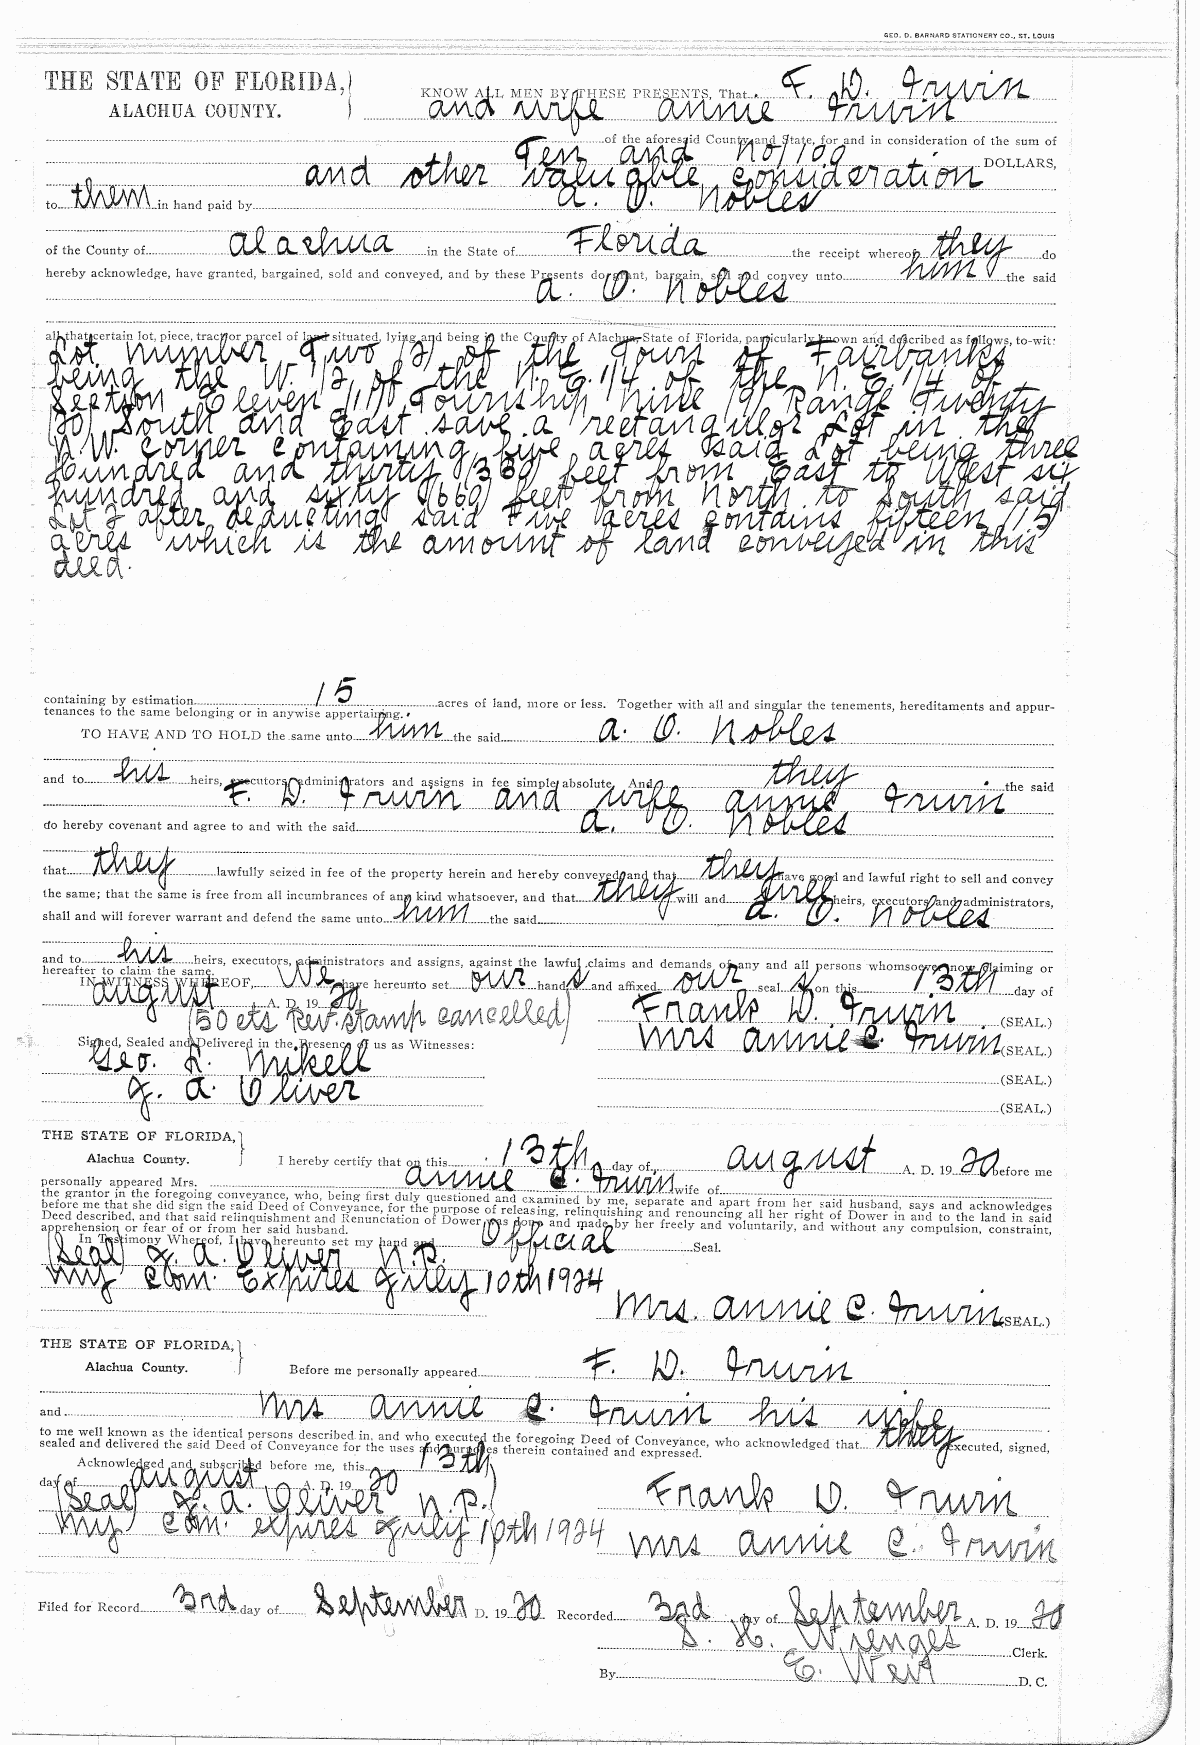 GEO. D. BARNARD STATIONERY CO., ST. LOUIS
THE STATE OF FLORIDA,
ALACHUA COUNTY.
KNOW ALL MEN BY THESE PRESENTS, That F. D. Irwin
and wife annie Irwin
of the aforesaid County and State, for and in consideration of the sum of
Ten and no/100 DOLLARS,
and other valuable consideration
to them in hand paid by a. O. Nobles
of the County of alachua in the State of Florida the receipt whereof they do
hereby acknowledge, have granted, bargained, sold and conveyed, and by these Presents do grant, bargain, sell and convey unto him the said
a. O. Nobles
all that certain lot, piece, tract or parcel of land situated, lying and being in the County of Alachua, State of Florida, particularly known and described as follows, to-wit:
Lot number Two (2) of the Town of Fairbanks
being the W. 1/2 of the N. E. 1/4 of the N. E. 1/4 of
Section Eleven (11) Township nine (9) Range Twenty
(20) South and East save a rectangular Lot in the
N.W. corner containing five acres said Lot being three
hundred and thirty (330) feet from East to West six
hundred and sixty (660) feet from North to South said
Lot 2 after deducting said Five acres contains fifteen (15)
acres which is the amount of land conveyed in this
deed.
containing by estimation 15 acres of land, more or less. Together with all and singular the tenements, hereditaments and appur-
tenances to the same belonging or in anywise appertaining.
TO HAVE AND TO HOLD the same unto him the said a. O. Nobles
and to his heirs, executors, administrators and assigns in fee simple absolute. And they the said
F. D. Irwin and wife annie Irwin
do hereby covenant and agree to and with the said a. O. Nobles
that they lawfully seized in fee of the property herein and hereby conveyed and that they have good and lawful right to sell and convey
the same; that the same is free from all incumbrances of any kind whatsoever, and that they will and heirs, executors and administrators,
shall and will forever warrant and defend the same unto him the said a. O. Nobles
and to his heirs, executors, administrators and assigns, against the lawful claims and demands of any and all persons whomsoever now claiming or
hereafter to claim the same.
IN WITNESS WHEREOF, We have hereunto set our hand s and affixed our seal s on this 13th day of
august A. D. 19 20
(50 cts Rev. stamp cancelled) Frank D. Irwin (SEAL.)
Signed, Sealed and Delivered in the Presence of us as Witnesses: Mrs annie C. Irwin (SEAL.)
Geo. L. Mikell
(SEAL.)
J. a. Oliver
(SEAL.)
THE STATE OF FLORIDA,
Alachua County.
I hereby certify that on this 13th day of august A. D. 19 20 before me
personally appeared Mrs. annie C. Irwin wife of
the grantor in the foregoing conveyance, who, being first duly questioned and examined by me, separate and apart from her said husband, says and acknowledges
before me that she did sign the said Deed of Conveyance, for the purpose of releasing, relinquishing and renouncing all her right of Dower in and to the land in said
Deed described, and that said relinquishment and Renunciation of Dower was done and made by her freely and voluntarily, and without any compulsion, constraint,
apprehension or fear of or from her said husband.
In Testimony Whereof, I have hereunto set my hand and Official Seal.
(Seal) J. a. Oliver N.P.
My Com. Expires July 10th 1924
Mrs. annie C. Irwin (SEAL.)
THE STATE OF FLORIDA,
Alachua County.
Before me personally appeared F. D. Irwin
and Mrs annie C. Irwin his wife
to me well known as the identical persons described in, and who executed the foregoing Deed of Conveyance, who acknowledged that they executed, signed,
sealed and delivered the said Deed of Conveyance for the uses and purposes therein contained and expressed.
Acknowledged and subscribed before me, this 13th
day of august A. D. 19 20
(Seal) J. a. Oliver N.P. Frank D. Irwin
My Com. expires July 10th 1924 Mrs annie C. Irwin
Filed for Record 3rd day of September A. D. 19 20 Recorded 3rd day of September A. D. 19 20
S. H. Wienges Clerk.
By E. D. C.